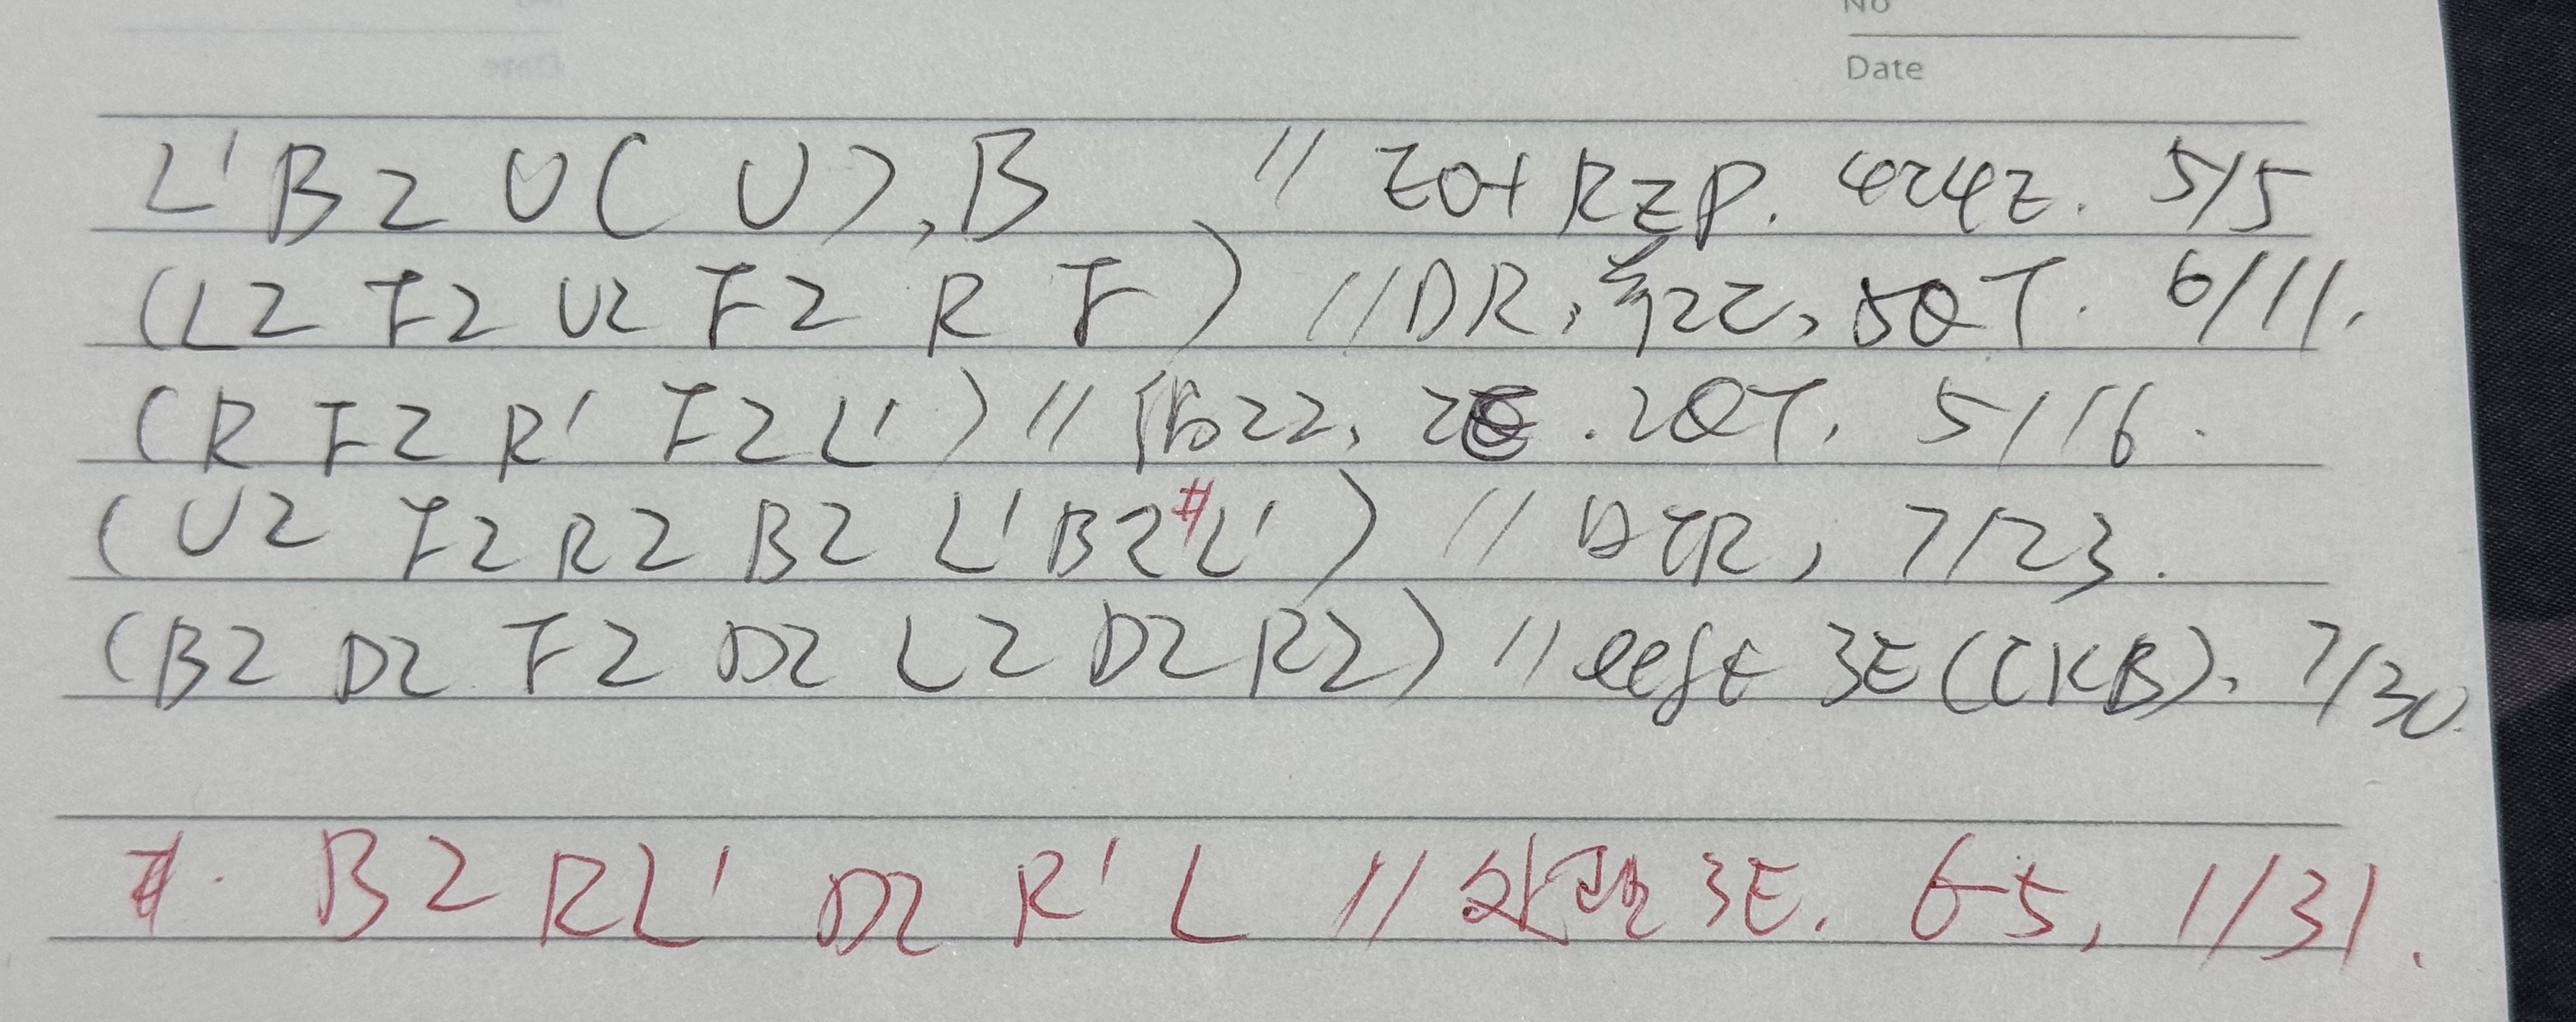 No
Date
L' B2 U ( U ), B // EO+RZP. 4c4e. 5/5
(L2 F2 U2 F2 R F ) // DR, 2c, 5QT. 6/11.
(R F2 R' F2 L' ) // 2QT, 5/16.
(U2 F2 R2 B2 L' B2 # L' ) // HTR, 7/23.
(B2 D2 F2 D2 L2 D2 R2) // left 3E (CKB). 7/30.
#. B2 R L' D2 R' L // 处理 3E. 6-5, 1/31.